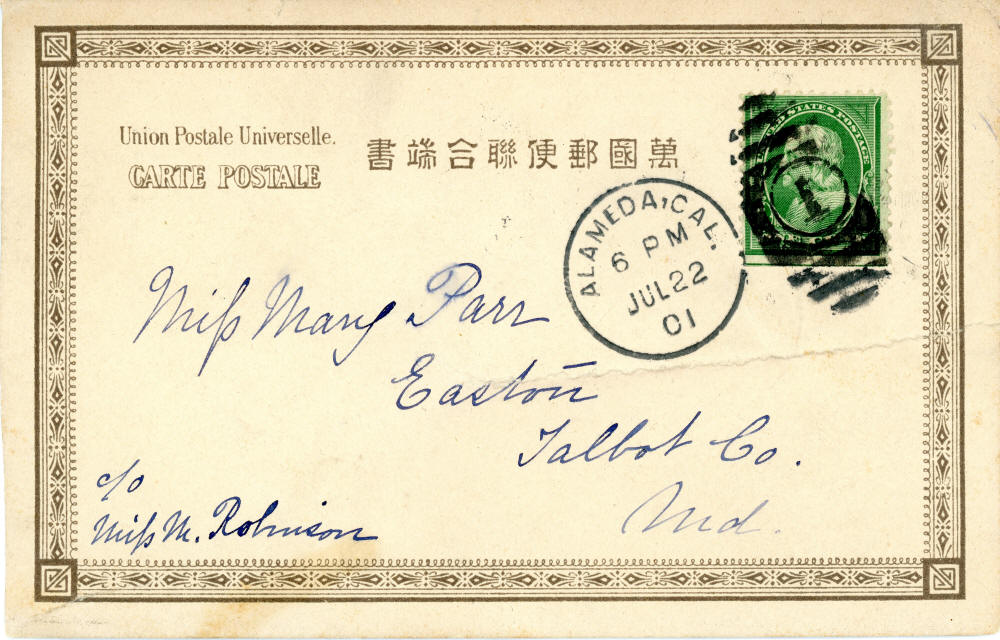 Union Postale Universelle.
CARTE POSTALE
萬國郵便聯合端書
UNITED STATES POSTAGE
1
ALAMEDA, CAL.
6 PM
JUL 22
01
Miſs Mary Parr
Easton
Talbot Co.
Md.
c/o
Miſs M. Robinson